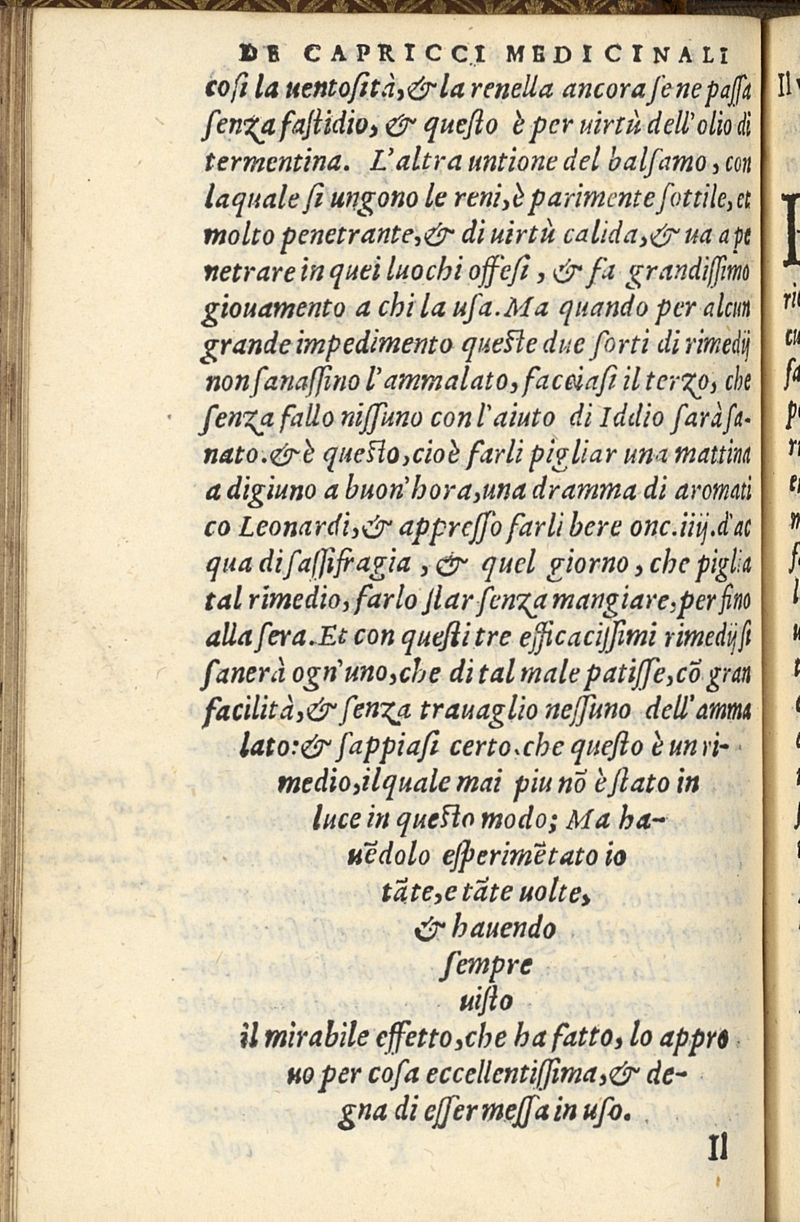 DE CAPRICCI MEDICINALI
coſi la uentoſità, & la renella ancora ſe ne paſſa
ſenza faſtidio, & queſto è per uirtù dell'olio di
termentina. L'altra untione del balſamo, con
laquale ſi ungono le reni, è parimente ſottile, et
molto penetrante, & di uirtù calida, & ua a pe
netrare in quei luochi offeſi, & fa grandiſſimo
giouamento a chi la uſa. Ma quando per alcun
grande impedimento queſte due ſorti di rimedij
non ſanaſſino l'ammalato, facciaſi il terzo, che
ſenza fallo niſſuno con l'aiuto di Iddio ſarà ſa-
nato. & è queſto, cioè farli pigliar una mattina
a digiuno a buon'hora, una dramma di aromati
co Leonardi, & appreſſo farli bere onc. iiij. d'ac
qua di ſaſſifragia, & quel giorno, che piglia
tal rimedio, farlo ſtar ſenza mangiare, per fino
alla ſera. Et con queſti tre efficaciſſimi rimedij ſi
ſanerà ogn'uno, che di tal male patiſſe, cō gran
facilità, & ſenza trauaglio neſſuno dell'amma
lato: & ſappiaſi certo. che queſto è un ri-
medio, ilquale mai piu nō è ſtato in
luce in queſto modo; Ma ha-
uēdolo eſperimētato io
tāte, e tāte uolte,
& hauendo
ſempre
uiſto
il mirabile effetto, che ha fatto, lo appro
uo per coſa eccellentiſſima, & de-
gna di eſſer meſſa in uſo.
Il